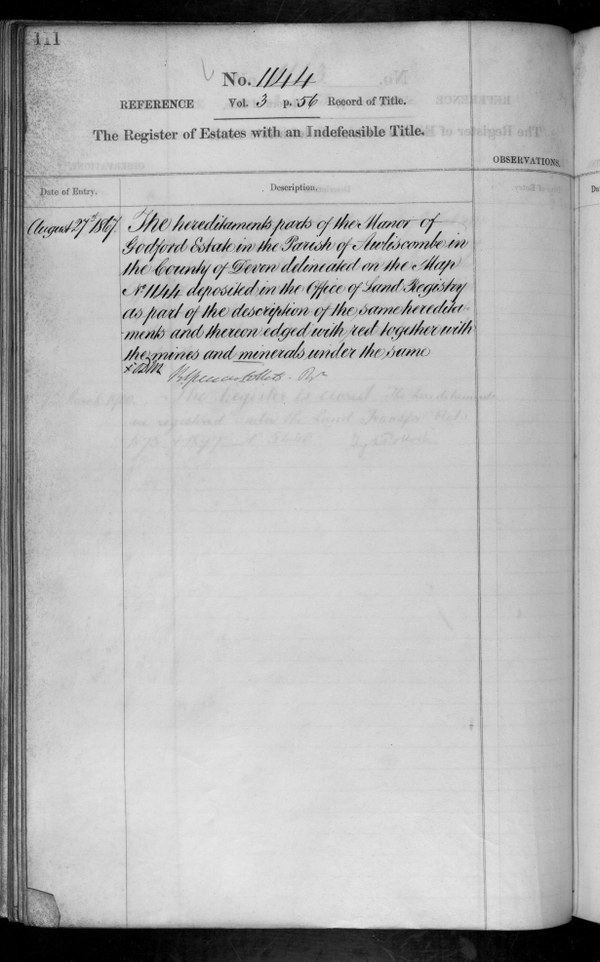 111
No. 1144
REFERENCE Vol. 3 p. 56 Record of Title.
The Register of Estates with an Indefeasible Title.
OBSERVATIONS.
Date of Entry. Description.
August 27th 1867. The hereditaments parts of the Manor of
Godford Estate in the Parish of Awliscombe in
the County of Devon delineated on the Map
No 1144 deposited in the Office of Land Registry
as part of the description of the same heredita-
ments and thereon edged with red together with
the mines and minerals under the same
The Register is closed. The hereditaments
are registered under the Land Transfer Act